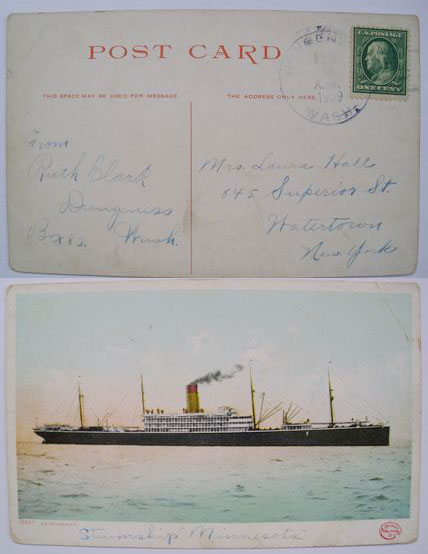 POST CARD
THIS SPACE MAY BE USED FOR MESSAGE.
THE ADDRESS ONLY HERE.
FEB
9
A.M.
1909
WASH.
U.S. POSTAGE
ONE CENT
From
Ruth Clark
Dungeness
Box 83. Wash.
Mrs. Laura Hall
845 Superior St.
Watertown
New York
S.S. "MINNESOTA"
Steamship "Minnesota"